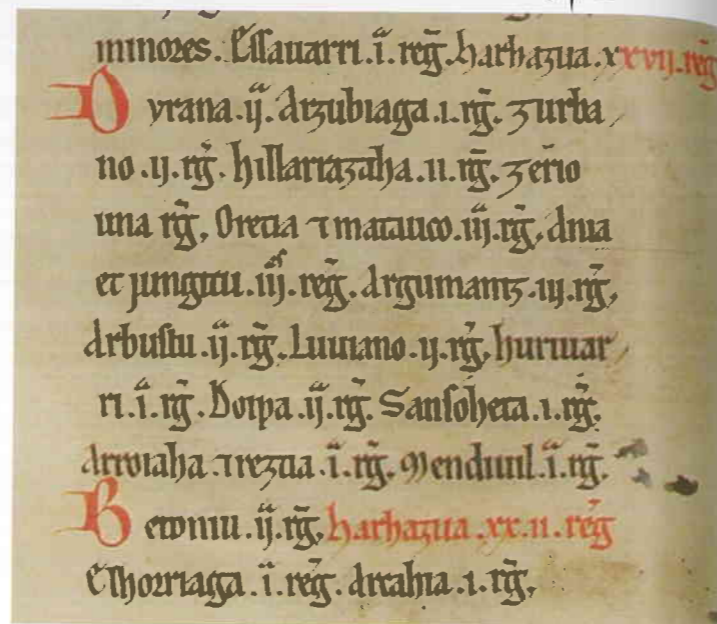 minores. Essavarri .i. reg̃. harhazua. xxvii. reg̃
Oyrana .ii. Arzubiaga .i. rg̃. zurba
no .ii. rg̃. hillarrazaha .ii. rg̃. zerio
una rg̃, Oretia ⁊ matauco .iii. rg̃, ania
et jungitu .iii. reg̃. Argumaniz .iii. rg̃,
Arbustu .ii. rg̃. Luuiano .ii. rg̃, huriuar
ri .i. rg̃. Doipa .ii. rg̃. Sansoheta .i. rg̃.
Arroiaha ⁊ reztia .i. rg̃. Mendiuil .i. rg̃.
Betoniu .ii. rg̃, harhazua .xx.ii. reg̃
Ehorriaga .i. reg̃. Arcahia .i. rg̃,